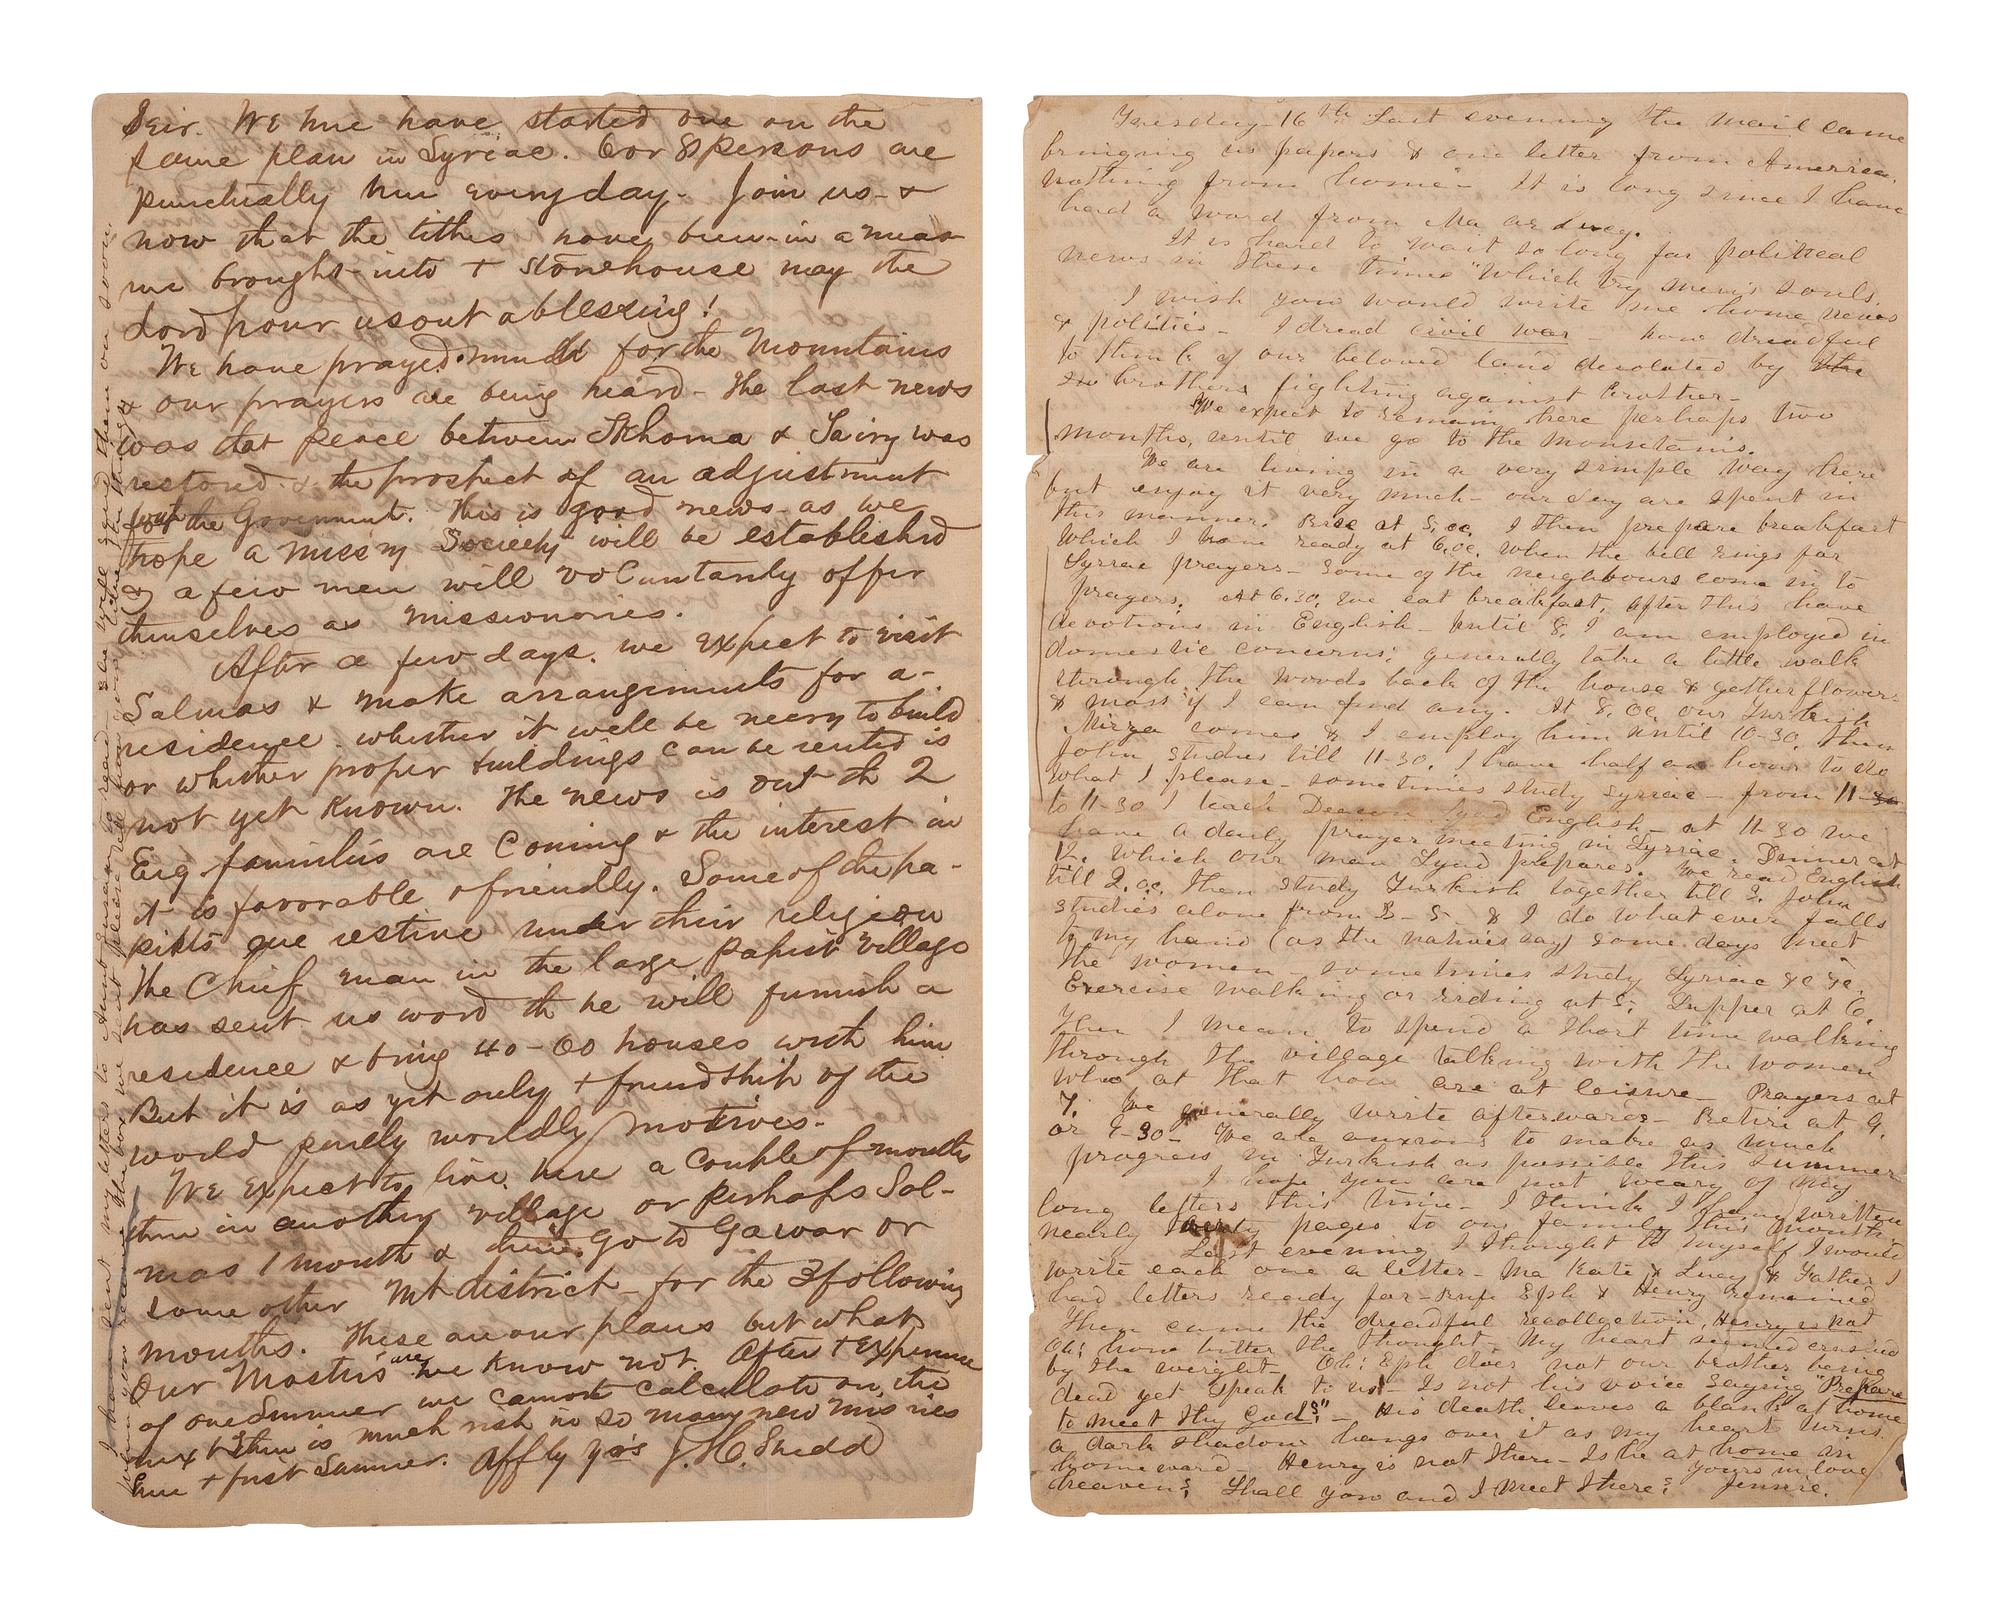 Seir. We hve have started one on the
same plan in Syriac. 6 or 8 persons are
punctually here every day. Join us - &
now that the tithes have been in a meas
ure brought into + storehouse may the
Lord pour us out a blessing!
We have prayed much for the Mountains
& our prayers are being heard - The last news
was that peace between Tkhoma & was
restored & the prospect of an adjustment
with the Government. This is good news - as we
hope a missny Society will be established
& a few men will voluntarily offer
themselves as missionaries.
After a few days, we expect to visit
Salmas & make arrangements for a-
residence. whether it will be necery to build
or whether proper buildings can be rented is
not yet known. The news is out th 2
Eng families are coming & the interest in
it is favorable & friendly. Some of the pa-
pists are restive under their religion
The Chief man in the large papist village
has sent us word th he will furnish a
residence & bring 40-60 houses with him
But it is as yet only + friendship of the
world purely worldly motives.
We expect to live here a couple of months
then in another village or perhaps Sal-
mas 1 month & then go to Gawar or
some other Mt district - for the 3 following
months. These are our plans but what
Our Masters are we know not. After + expense
of one Summer we cannot calculate on the
nex & then is much risk in so many new mis ries
here + first Summer. Affly yrs J. H. Shedd
I have sent my letters to Aunt to read - she will send them on soon
when you receive the box we sent please tell how you like the things
Tuesday 16th Last evening the mail came
bringing us papers & one letter from America,
nothing from "home" - It is long since I have
had a word from Ma or Lucy.
It is hard to wait so long for political
news in these times "Which try men's souls.
I wish you would write me home news
& politics - I dread civil war - how dreadful
to think of our beloved land desolated by the
brothers fighting against brother -
We expect to remain here perhaps two
months, until we go to the mountains.
We are living in a very simple way here
but enjoy it very much - our day are spent in
this manner. Rise at 5, oc, I then prepare breakfast
which I have ready at 6, oc, when the bell rings for
Syriac prayers - Some of the neighbours come in to
prayers. At 6.30. we eat breakfast. After this have
devotions in English - Until 8, I am employed in
domestic concerns; generally take a little walk
through the woods back of the house & gether flowers
& moss if I can find any. At 8, oc, our Turkish
Mirza comes & I employ him until 10-30. Then
John studies till 11-30. I have half an hour to do
what I please - sometimes study Syriac - from 11-30
to 11-30 I teach Deacon English - at 11-30 we
have a daily prayer meeting in Syriac. Dinner at
12. Which our man prepares. We read English
till 2, oc. then study Turkish together till 3. John
studies alone from 3 - 5 - & I do what ever falls
to my hand (as the natives say) some days meet
the women - sometimes study Syriac &c &c.
Exercise walking or riding at 5; Supper at 6.
Then I mean to spend a short time walking
through the village talking with the women
who at that hour are at leisure - Prayers at
7. We generally write afterwards - Retire at 9.
or 9-30 - We are anxious to make as much
progress in Turkish as possible this summer
I hope you are not weary of my
long letters this time - I think I have written
nearly pages to our family this month.
Last evening I thought to myself I would
write each one a letter - Ma Kate & Lucy & Father I
had letters ready for - Eph & Henry remained
Then came the dreadful recollection, Henry is not
Oh; how bitter the thought. My heart seemed crushed
by the weight - Oh; Eph does not our brother being
dead yet speak to us - Is not his voice saying "Prepare
to meet thy God?" - His death leaves a blank at home
a dark shadow hangs over it as my heart turns
homeward - Henry is not there - Is he at home in
heaven? Shall you and I meet there? Yours in love
Jennie.